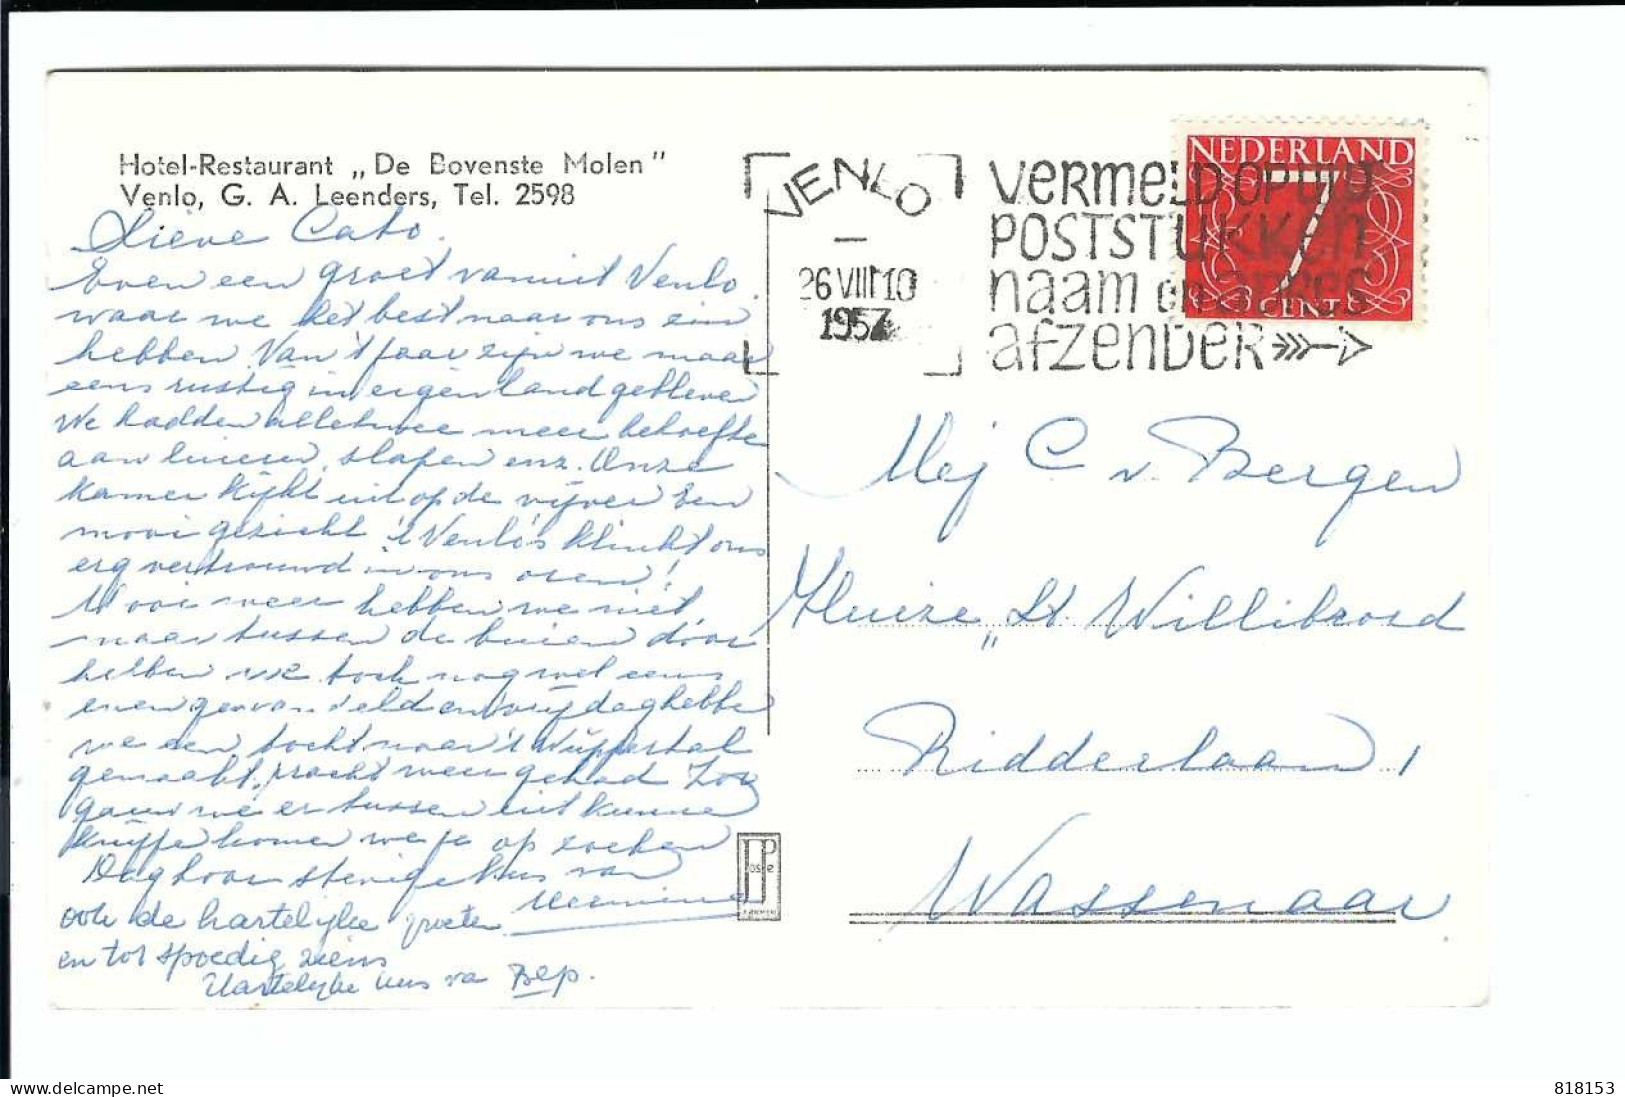 Hotel-Restaurant „De Bovenste Molen"
Venlo, G. A. Leenders, Tel. 2598
Lieve Cato.
Even een groet vanuit Venlo.
waar we het best naar ons zin
hebben Van 't jaar zijn we maar
eens rustig in eigen land gebleven
We hadden alletwee meer behoefte
aan luieren, slapen enz. Onze
kamer kijkt uit op de vijver Een
mooi gezicht 't Venlo's klinkt ons
erg vertrouwd in ons oren!
Mooi weer hebben we niet
maar tussen de buien door
hebben we toch nog wel eens
we een tocht naar 't Wuppertal
gemaakt, pracht weer gehad Zoo
gauw we er tussen uit kunnen
knijpen komen we je op zoeken
Dag hoor stevige kus van
ook de hartelijke groeten
en tot spoedig ziens
Hartelijke kus va Bep.
VENLO
26 VIII 10
1957
VERMELD OP UW
POSTSTUKKEN
naam en adres
afzender
NEDERLAND
7
CENT
Mej C v. Bergen
Kluize „St Willibrord
Ridderlaan 1
Wassenaar
delcampe.net
818153